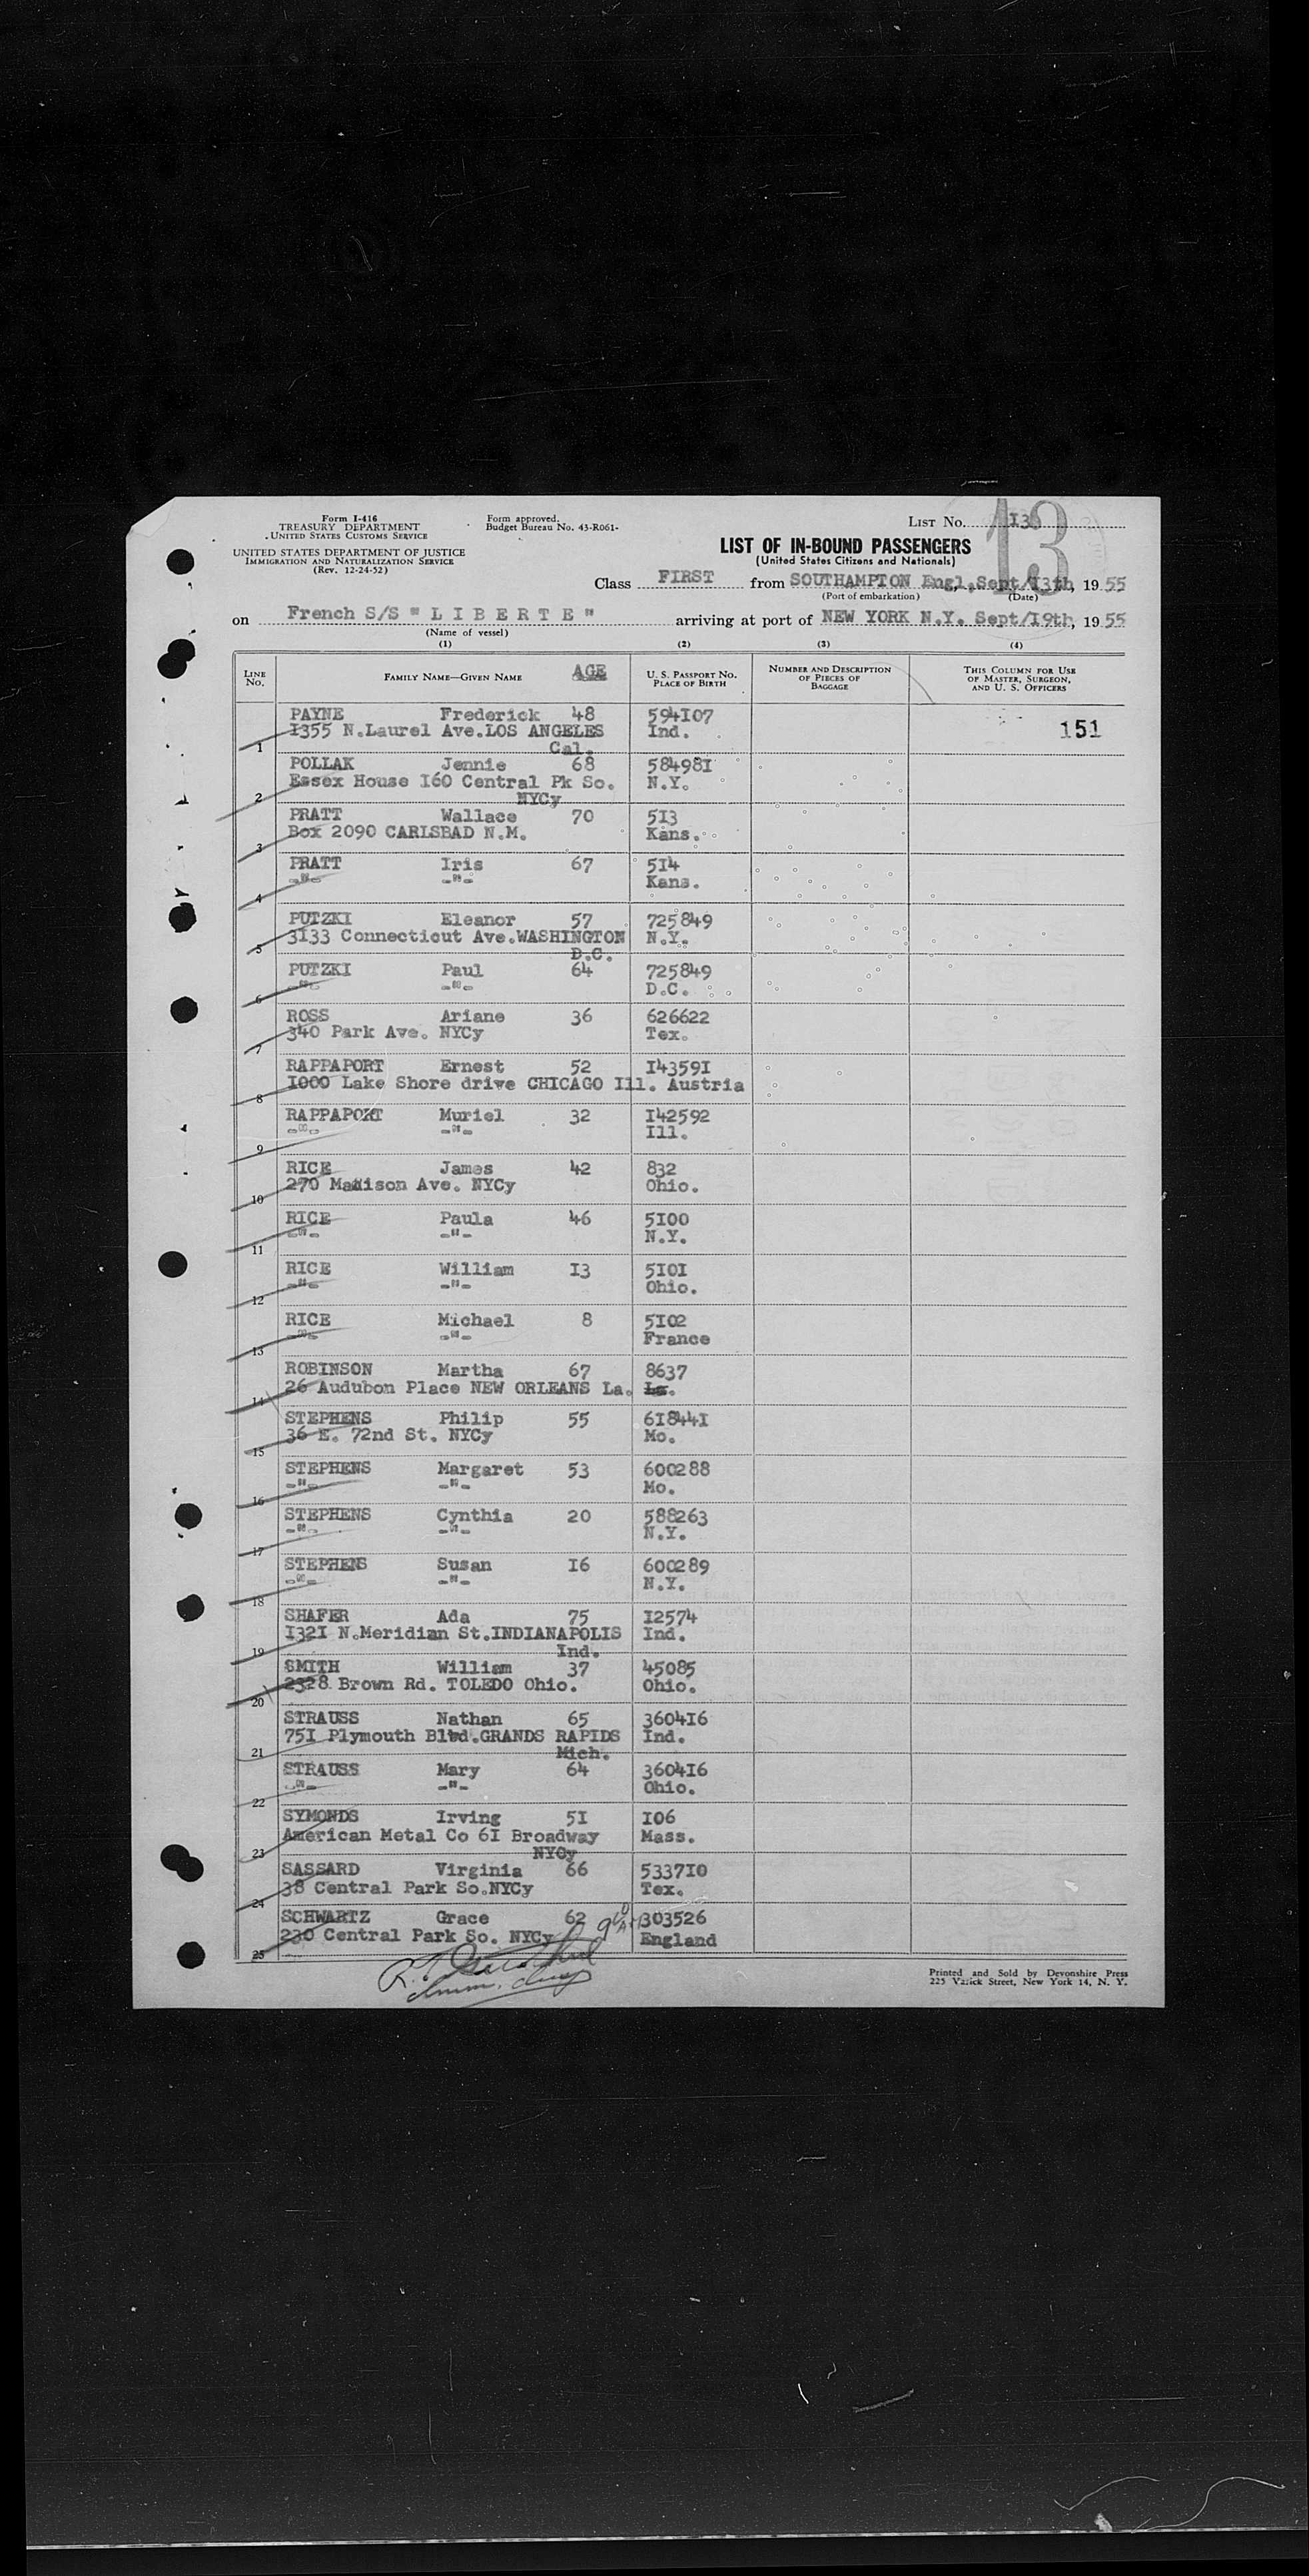 Form I-416
TREASURY DEPARTMENT
UNITED STATES CUSTOMS SERVICE
UNITED STATES DEPARTMENT OF JUSTICE
IMMIGRATION AND NATURALIZATION SERVICE
(Rev. 12-24-52)
Form approved.
Budget Bureau No. 43-R061-
LIST No. I3
13
LIST OF IN-BOUND PASSENGERS
(United States Citizens and Nationals)
Class FIRST from SOUTHAMPTON Engl., Sept/I3th, 1955
(Port of embarkation) (Date)
on French S/S " L I B E R T E " arriving at port of NEW YORK N.Y. Sept/I9th, 1955
(Name of vessel)
(1) (2) (3) (4)
LINE No. FAMILY NAME—GIVEN NAME AGE U. S. PASSPORT No. PLACE OF BIRTH NUMBER AND DESCRIPTION OF PIECES OF BAGGAGE THIS COLUMN FOR USE OF MASTER, SURGEON, AND U. S. OFFICERS
PAYNE Frederick 48 594I07 151
1 I355 N.Laurel Ave.LOS ANGELES Ind.
Cal.
POLLAK Jennie 68 58498I
2 Essex House I60 Central Pk So. N.Y.
NYCy
PRATT Wallace 70 5I3
3 Box 2090 CARLSBAD N.M. Kans.
PRATT Iris 67 5I4
4 -"- -"- Kans.
PUTZKI Eleanor 57 725849
5 3I33 Connecticut Ave.WASHINGTON N.Y.
D.C.
PUTZKI Paul 64 725849
6 -"- -"- D.C.
ROSS Ariane 36 626622
7 340 Park Ave. NYCy Tex.
RAPPAPORT Ernest 52 I4359I
8 I000 Lake Shore drive CHICAGO Ill. Austria
RAPPAPORT Muriel 32 I42592
9 -"- -"- Ill.
RICE James 42 832
10 270 Madison Ave. NYCy Ohio.
RICE Paula 46 5I00
11 -"- -"- N.Y.
RICE William I3 5I0I
12 -"- -"- Ohio.
RICE Michael 8 5I02
13 -"- -"- France
ROBINSON Martha 67 8637
14 26 Audubon Place NEW ORLEANS La. La.
STEPHENS Philip 55 6I844I
15 36 E. 72nd St. NYCy Mo.
STEPHENS Margaret 53 600288
16 -"- -"- Mo.
STEPHENS Cynthia 20 588263
17 -"- -"- N.Y.
STEPHENS Susan I6 600289
18 -"- -"- N.Y.
SHAFER Ada 75 I2574
19 I32I N.Meridian St.INDIANAPOLIS Ind.
Ind.
SMITH William 37 45085
20 2328 Brown Rd. TOLEDO Ohio. Ohio.
STRAUSS Nathan 65 3604I6
21 75I Plymouth Blvd.GRANDS RAPIDS Ind.
Mich.
STRAUSS Mary 64 3604I6
22 -"- -"- Ohio.
SYMONDS Irving 5I I06
23 American Metal Co 6I Broadway Mass.
NYCy
SASSARD Virginia 66 5337I0
24 38 Central Park So.NYCy Tex.
SCHWARTZ Grace 62 303526
25 230 Central Park So. NYCy England
Printed and Sold by Devonshire Press
225 Varick Street, New York 14, N. Y.